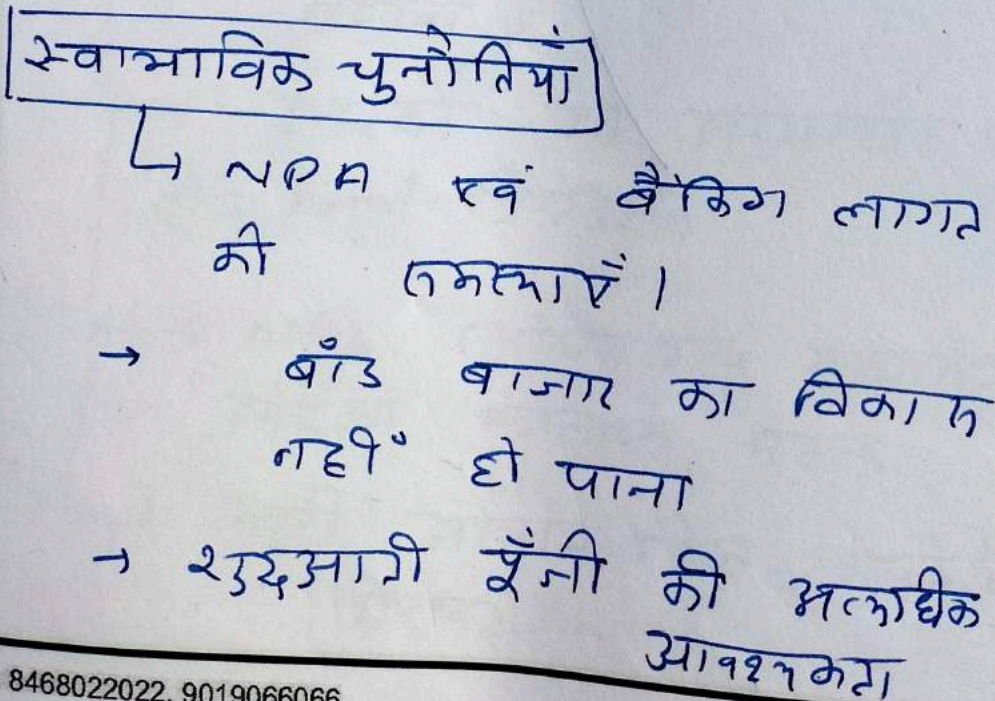 स्वाभाविक चुनौतियाँ
↳ NPA एवं बैंकिंग लागत
की समस्याएँ।
→ बॉंड बाजार का विकास
नहीं हो पाना
→ शुरुआती पूँजी की अत्यधिक
आवश्यकता
8468022022, 9019066066